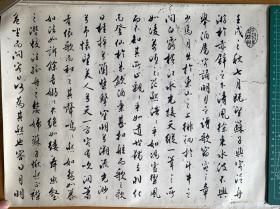 壬戌之秋七月既望蘇子與客泛舟
游於赤壁之下清風徐來水波不興
舉酒屬客誦明月之詩歌窈窕之章
少焉月出於東山之上徘徊於斗牛之
間白露橫江水光接天縱一葦之所
如凌萬頃之茫然浩浩乎如馮虛御風
而不知其所止飄飄乎如遺世獨立羽化
而登仙於是飲酒樂甚扣舷而歌之歌
曰桂棹兮蘭槳擊空明兮泝流光渺渺
兮予懷望美人兮天一方客有吹洞簫
者倚歌而和之其聲嗚嗚然如怨如慕
如泣如訴餘音嫋嫋不絕如縷舞幽壑
之潛蛟泣孤舟之嫠婦蘇子愀然正襟
危坐而問客曰何為其然也客曰月明